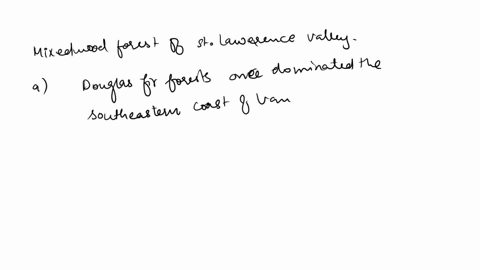 Mixedwood forest of st. Lawerence valley.
a) Douglas fir forests once dominated the
southeastern coast of Van